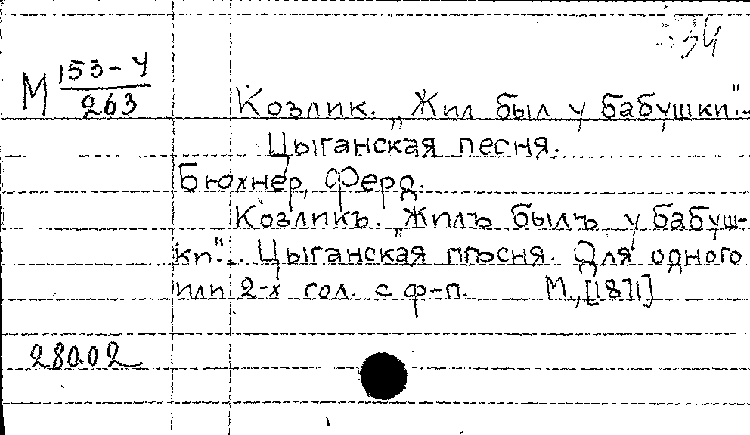 34
М 153-4/263
Козлик. „Жил был у бабушки"..
Цыганская песня.
Бюхнер, Ферд.
Козликъ. „Жилъ былъ у бабуш-
ки"... Цыганская пѣсня. Для одного
или 2-х гол. с ф-п. М., [1871]
28002